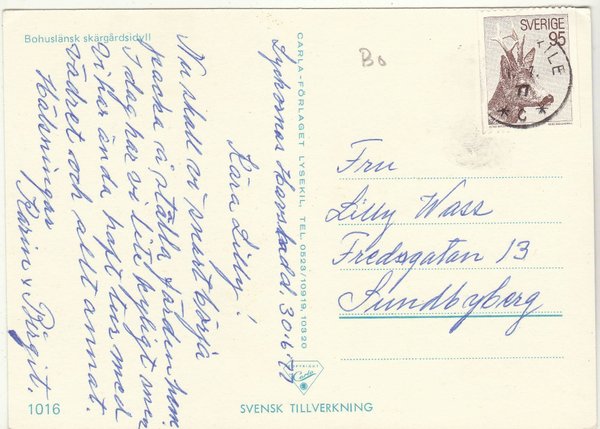 Bohuslänsk skärgårdsidyll
Lyckornas Havsbadd 30.6.77
Kära Lilly!
Nu skall vi snart börja
packa o ställa färden hem.
I dag har vi lite kyligt men
vi har ända haft tur med
vädret och allt annat.
Hälsningar
Karin o Birgit.
1016
CARLA-FÖRLAGET LYSEKIL, TEL. 0523/10919, 10320
COPYRIGHT
Carla
SVENSK TILLVERKNING
Bo
SVERIGE
95
Fru
Lilly Wass
Fredsgatan 13
Sundbyberg